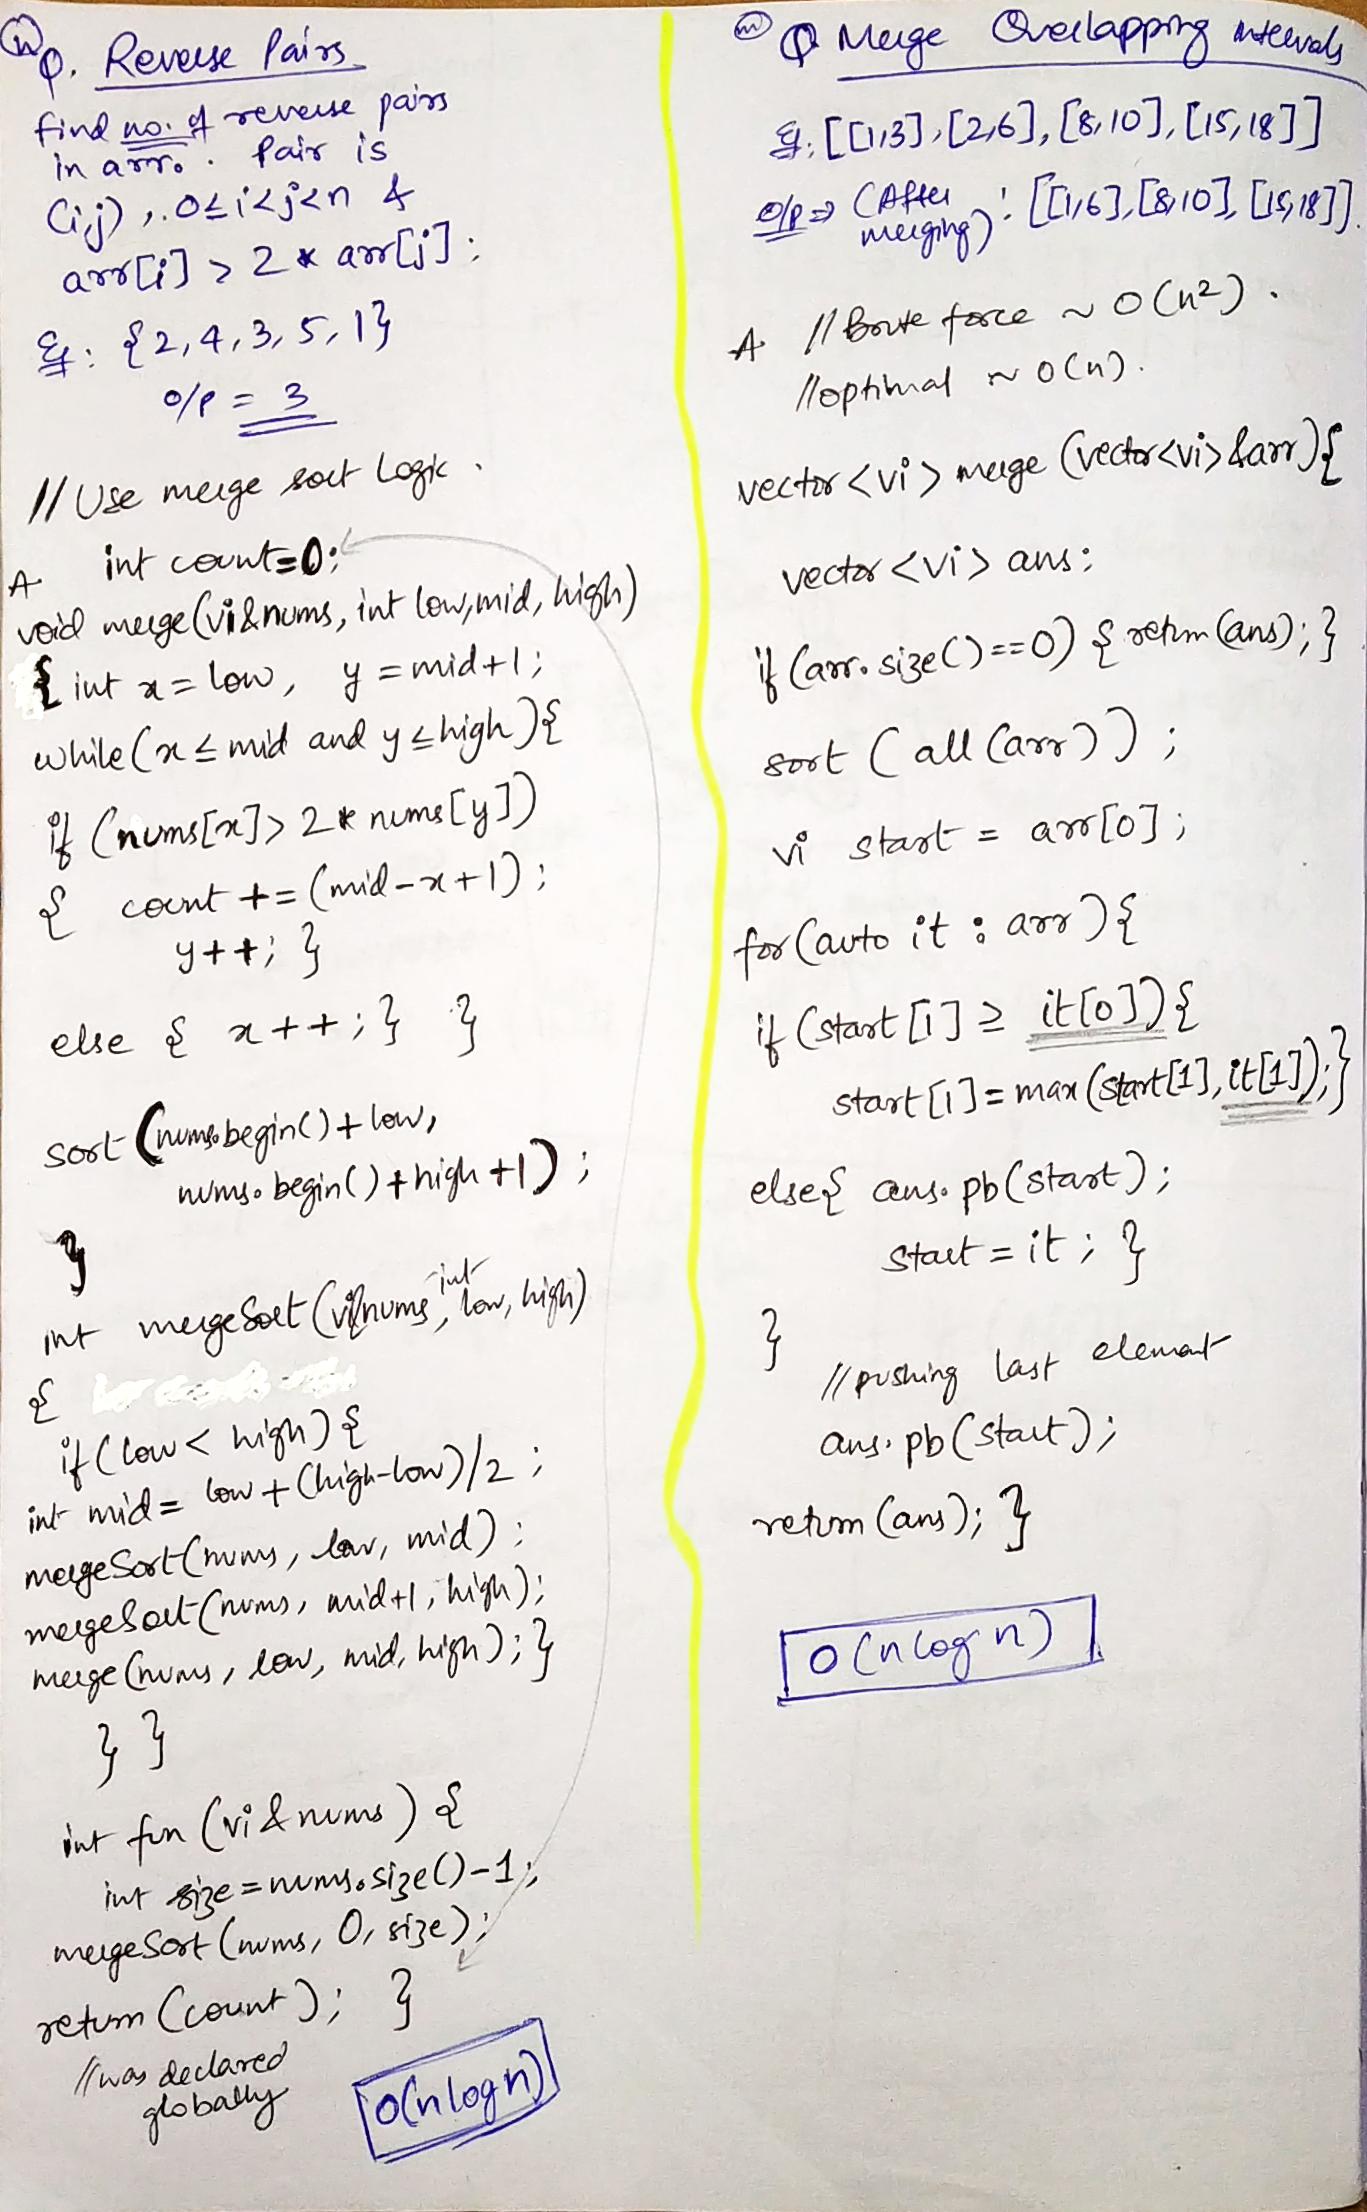 (m) Q. Reverse Pairs
find no. of reverse pairs
in arr. Pair is
(i,j), 0≤i<j<n &
arr[i] > 2 * arr[j];
Eg: {2,4,3,5,1}
o/p = 3
// Use merge sort logic.
A int count=0;
void merge(vi&nums, int low,mid, high)
{ int x = low, y = mid+1;
while(x ≤ mid and y ≤ high){
if (nums[x] > 2 * nums[y])
{ count += (mid-x+1);
y++; }
else { x++; } }
sort (nums.begin()+low,
nums.begin()+high+1);
}
int mergeSort(vi&nums, int low, high)
{
if(low < high){
int mid = low + (high-low)/2;
mergeSort(nums, low, mid);
mergeSort(nums, mid+1, high);
merge(nums, low, mid, high);}
} }
int fun (vi & nums) {
int size = nums.size()-1;
mergeSort(nums, 0, size);
return (count); }
//was declared
globally
O(nlogn)
(m) Q Merge Overlapping intervals
Eg: [[1,3],[2,6],[8,10],[15,18]]
o/p ⇒ (After
merging): [[1,6],[8,10],[15,18]].
A //Brute force ~ O(n²).
//optimal ~ O(n).
vector<vi> merge (vector<vi>&arr){
vector<vi> ans;
if (arr.size()==0) { return (ans); }
sort (all(arr));
vi start = arr[0];
for (auto it : arr){
if (start[1] ≥ it[0]){
start[1] = max(start[1], it[1]);}
else{ ans.pb(start);
start = it; }
}
//pushing last element
ans.pb(start);
return (ans); }
O(nlogn)